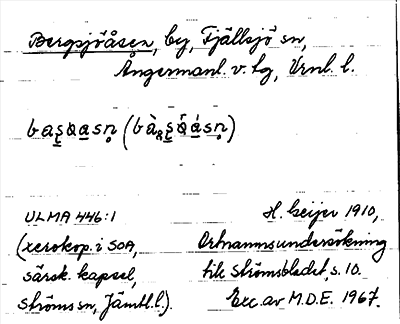 Bergsjöåsen, by, Fjällsjö sn,
Ångermanl. v. lg, Vrnl. l.
ULMA 446:1
H. Geijer 1910,
(xerokop. i SOA,
Ortnamnsundersökning
särsk. kapsel,
till Strömsbladet, s. 10.
Ströms sn, Jämtl. l.).
Exc. av M.D.E. 1967.